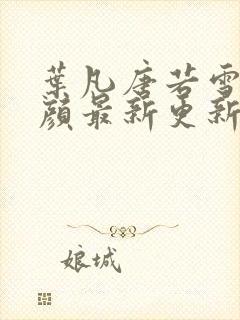 葉凡唐若雪
顔最新更新
娘城